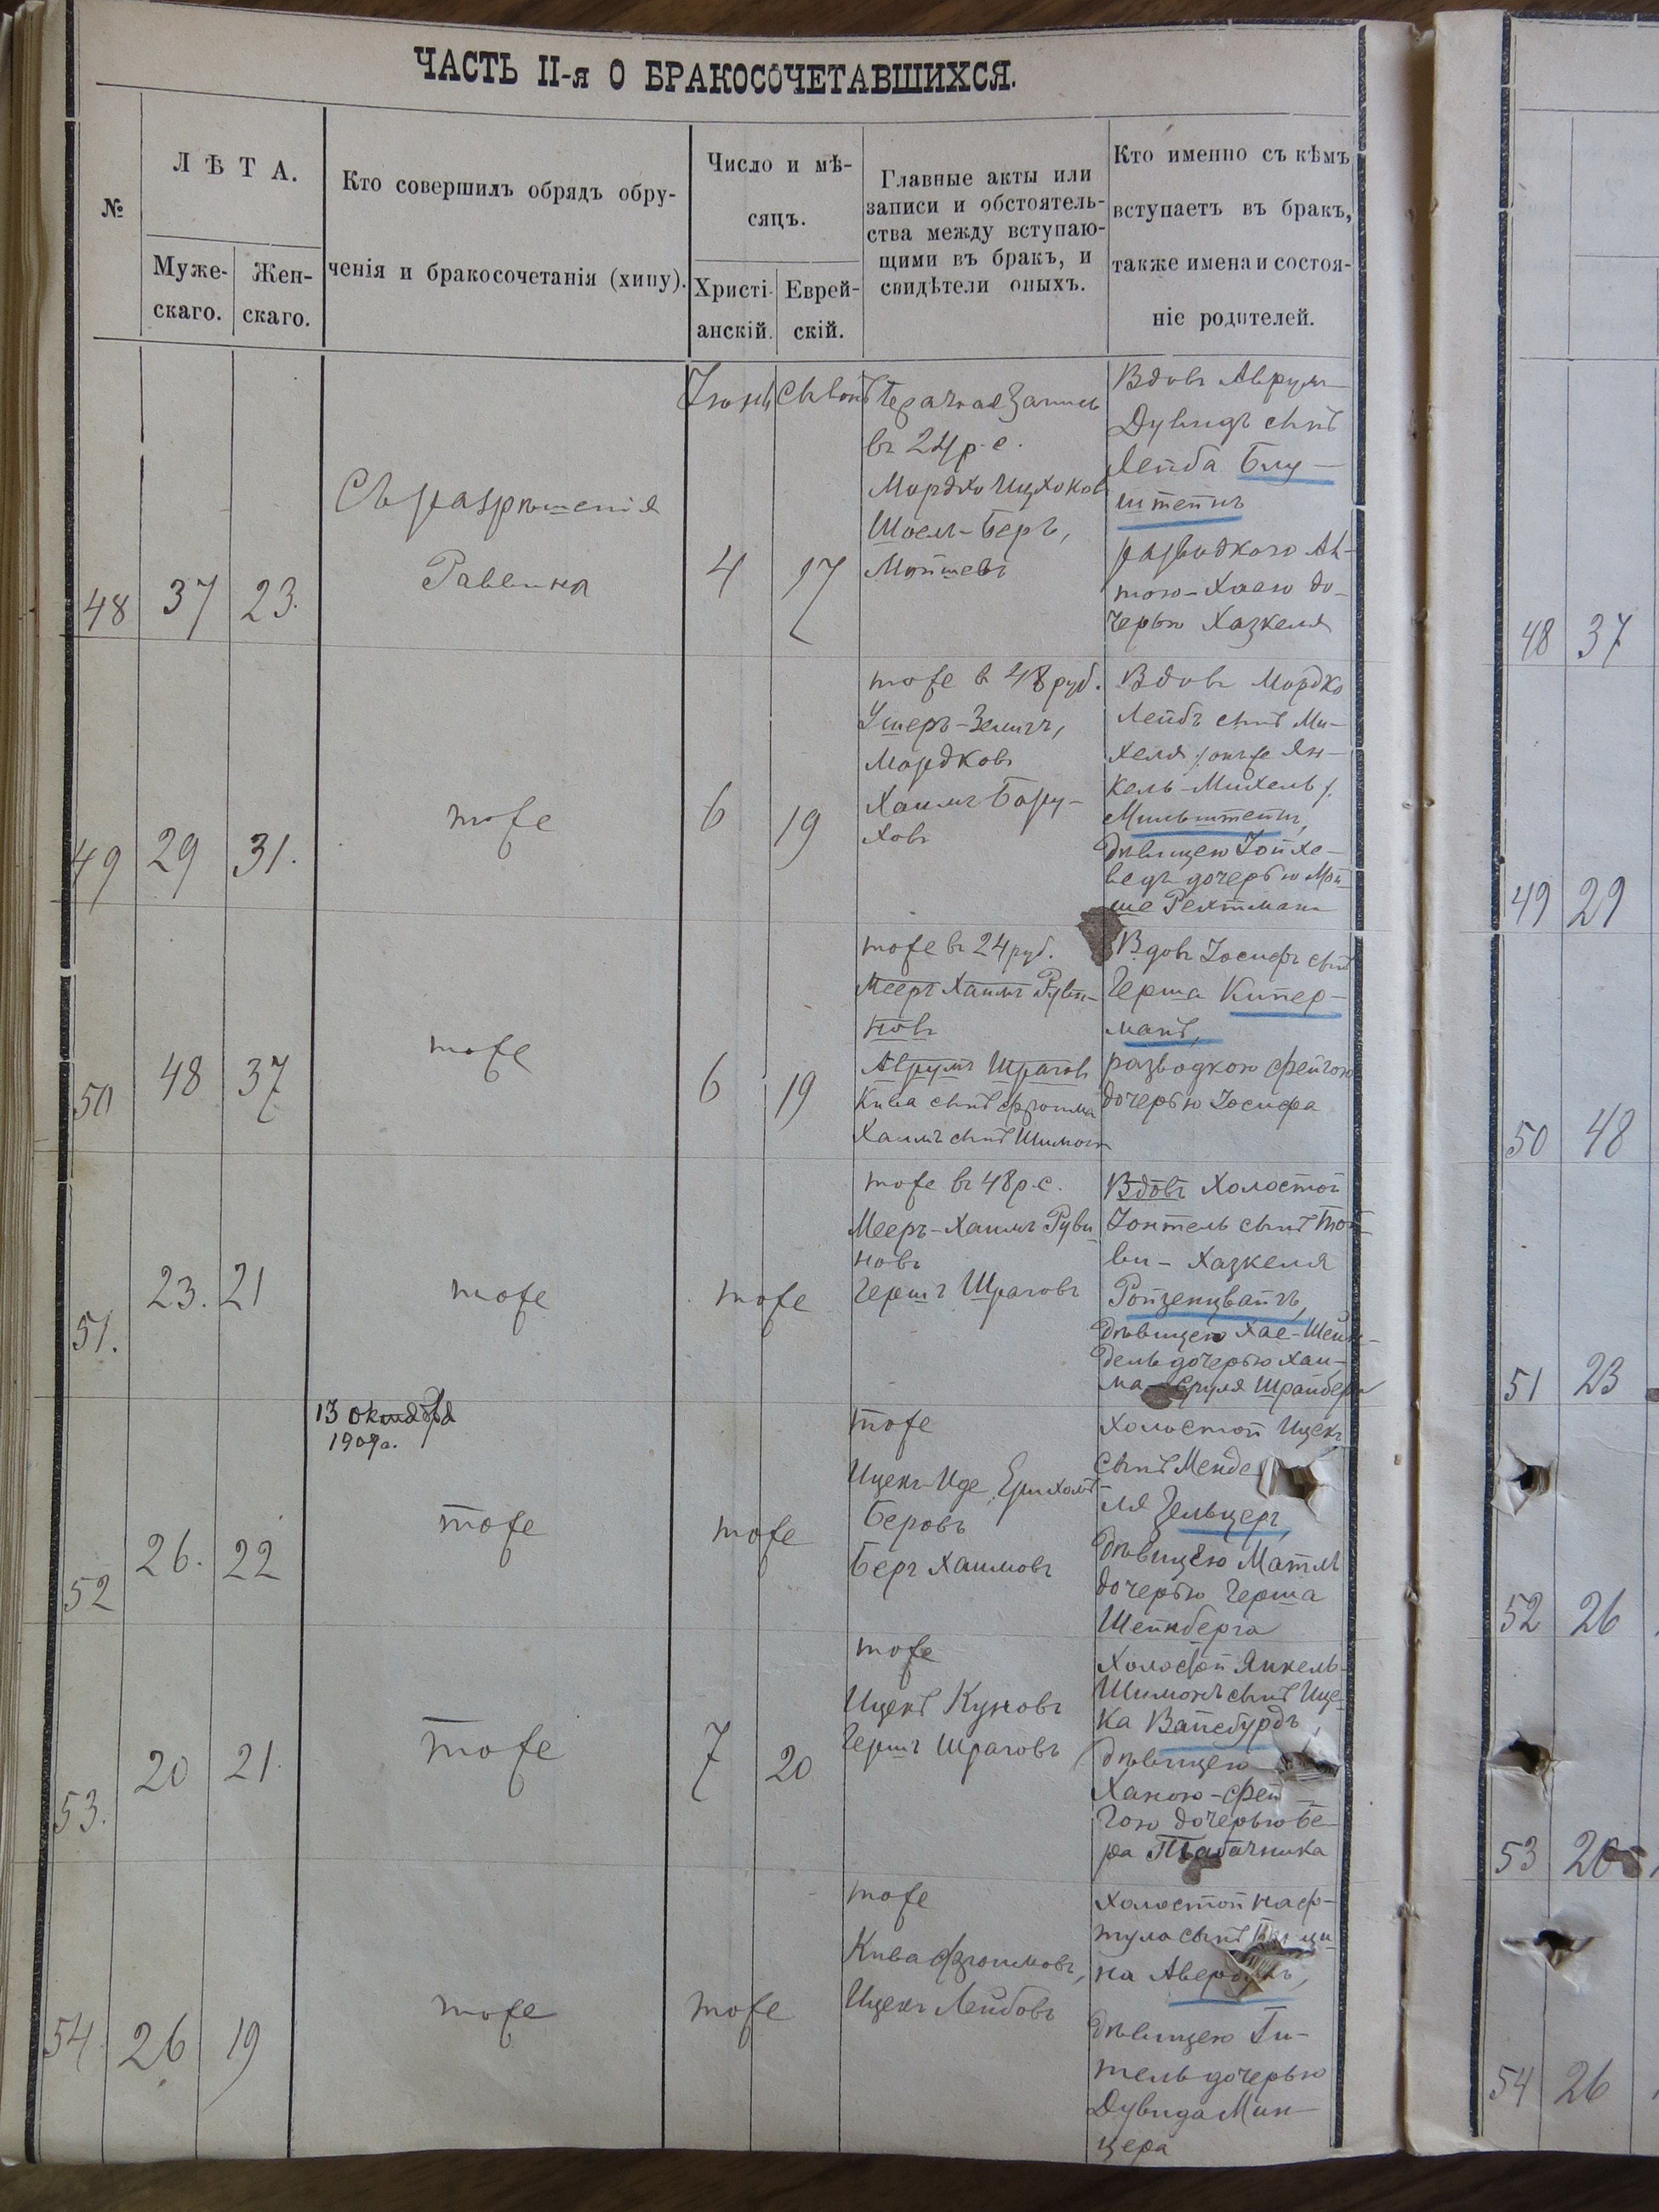 ЧАСТЬ II-я О БРАКОСОЧЕТАВШИХСЯ.
№
ЛѢТА.
Муже-
скаго.
Жен-
скаго.
Кто совершилъ обрядъ обру-
ченія и бракосочетанія (хипу).
Число и мѣ-
сяцъ.
Христі-
анскій.
Еврей-
скій.
Главные акты или
записи и обстоятель-
ства между вступаю-
щими въ бракъ, и
свидѣтели оныхъ.
Кто именно съ кѣмъ
вступаетъ въ бракъ,
также имена и состоя-
ніе родителей.
48
37
23.
Съ разрѣшенія
Раввина
Іюнь
4
Сивонъ
17
Брачная запись
въ 24 р. с.
Мордко Ицхоков
Шоел-Беръ,
Мойшевъ
Вдовъ Аврум-
Дувидъ сынъ
Лейба Блу-
штейнъ
разводкою
тою-Хаею до-
черью Хазкеля
49
29
31.
тоже
6
19
тоже в 48 руб.
Ушеръ-Зелигъ,
Мордковъ
Хаимъ Бору-
ховъ
Вдовъ Мордко
Лейбъ сынъ Ми-
хеля /онъ же Ян-
кель-Михель/.
Мильштейнъ,
дѣвицею Іойхе-
ведъ дочерью Мой
ше Рехтман
50
48
37
тоже
6
19
тоже въ 24 руб.
Мееръ Хаимъ Рувин-
новъ
Аврумъ Шраговъ
Кива сынъ Фроима
Хаимъ сынъ Шимона
Вдовъ Іосифъ сынъ
Герша Кипер-
манъ,
разводкою Фейгою
дочерью Іосифа
51.
23.
21
тоже
тоже
тоже въ 48 р. с.
Мееръ-Хаимъ Руви
новъ
Гершъ Шраговъ
Вдовъ Холостой
Іонтель сынъ Той
ви-Хазкеля
Ройзенцвайгъ,
дѣвицею Хае-Шейн-
дель дочерью Хаи-
ма-Сруля Шрайбера
13 октября
1909 г.
52
26.
22
тоже
тоже
тоже
Ицекъ-Иде
Беровъ
Беръ Хаимовъ
Холостой Ицекъ
сынъ Менде
ля Зельцеръ,
дѣвицею Матль
дочерью Герша
Шейнберга
53.
20
21.
тоже
7
20
тоже
Ицекъ Куновъ
Гершъ Шраговъ
Холостой Янкель-
Шимонъ сынъ Ице-
ка Вайсбурдъ,
дѣвицею
Ханою-Фей
гою дочерью Бе-
ра Табачника
54.
26
19
тоже
тоже
тоже
Кива Фроимовъ,
Ицекъ Лейбовъ
Холостой Наф-
тула сынъ
на
дѣвицею Ги-
тель дочерью
Дувида Мин-
цера
48
37
49
29
50
48
51
23
52
26
53
20
54
26